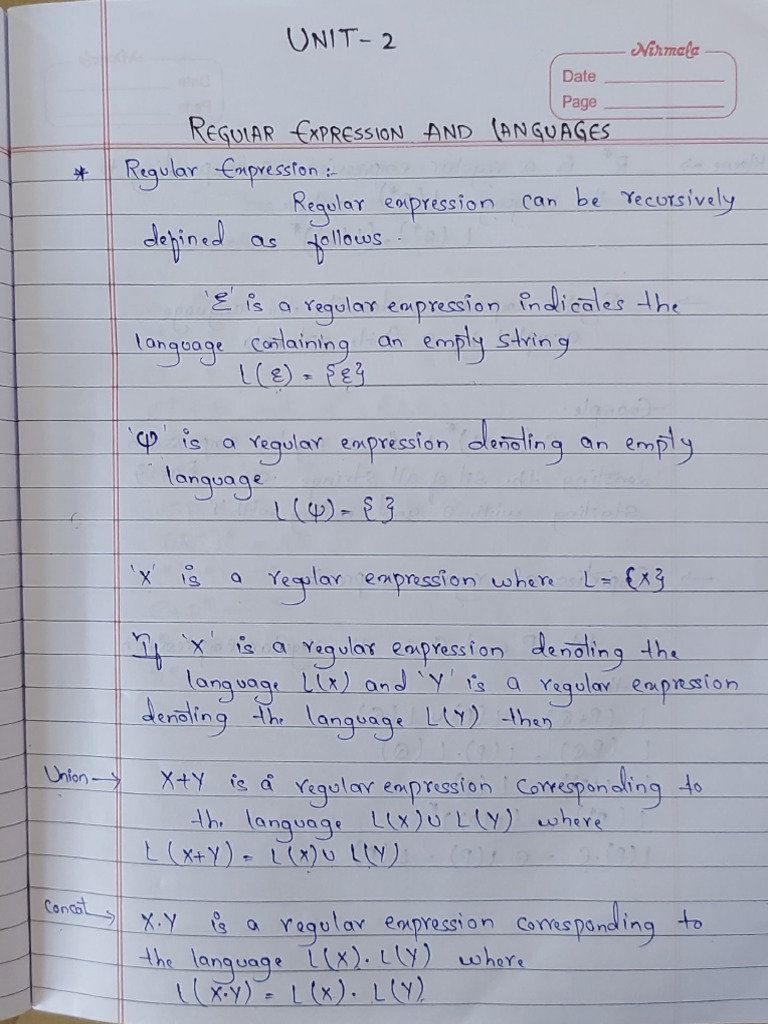 UNIT-2
Nirmala
Date
Page
REGULAR EXPRESSION AND LANGUAGES
* Regular Expression :-
Regular expression can be recursively
defined as follows.
'ξ' is a regular expression indicates the
language containing an empty string
L(ε) = {ε}
'φ' is a regular expression denoting an empty
language
L(ψ) = { }
'X' is a regular expression where L = {X}
If 'X' is a regular expression denoting the
language L(X) and 'Y' is a regular expression
denoting the language L(Y) then
Union → X+Y is a regular expression corresponding to
the language L(X) U L(Y) where
L(X+Y) = L(X) U L(Y)
Concat → X.Y is a regular expression corresponding to
the language L(X). L(Y) where
L(X.Y) = L(X). L(Y)